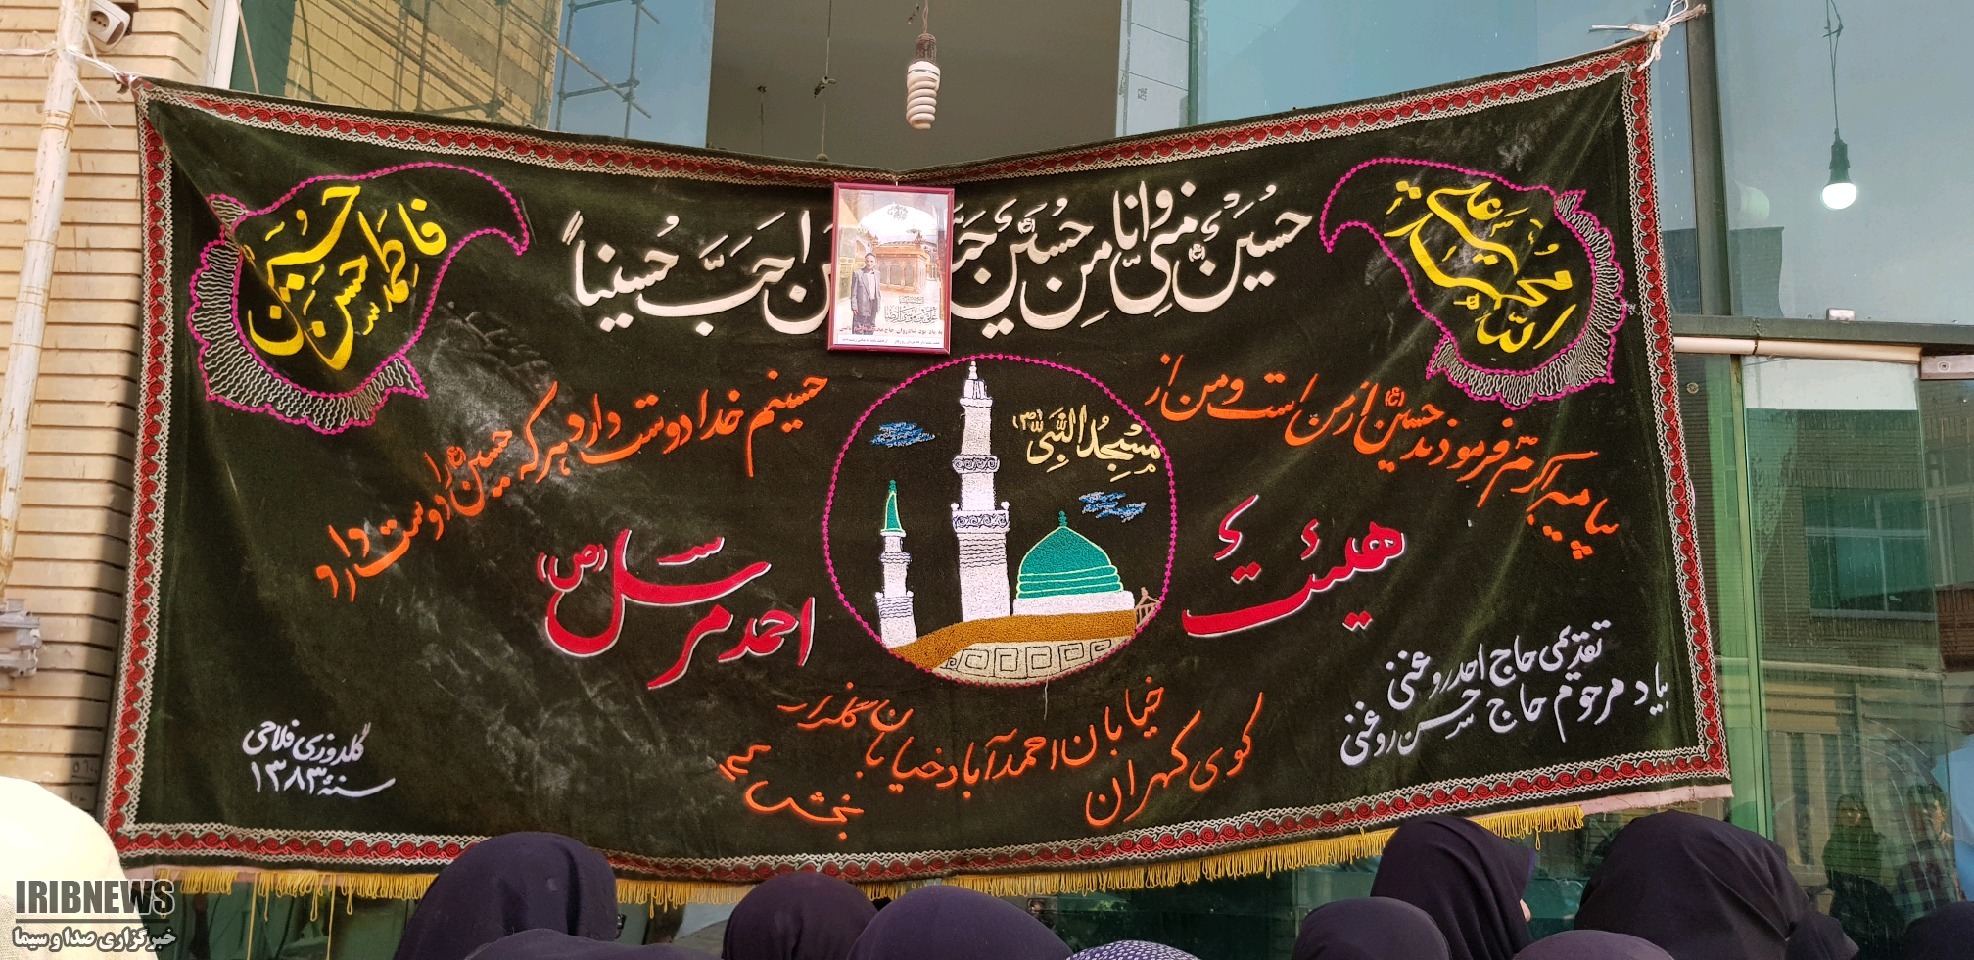 الله محمد علی
حُسَینٌ مِنّی وَ اَنا مِن حُسَین
اَحَبَّ حُسَیناً
فاطمه حسن حسین
پیامبر اکرم فرمودند حسین از من است و من از
حسینم خدا دوست دارد هر که حسین را دوست دارد
مسجد النبی (ص)
هیئت
احمد مرسل (ص)
تقدیمی حاج احمد روغنی
بیاد مرحوم حاج حسن روغنی
خیابان احمدآباد خیابان گلزار
کوی کهران
گلدوزی فلاحی
سنه ۱۳۸۳
IRIBNEWS
خبرگزاری صدا و سیما